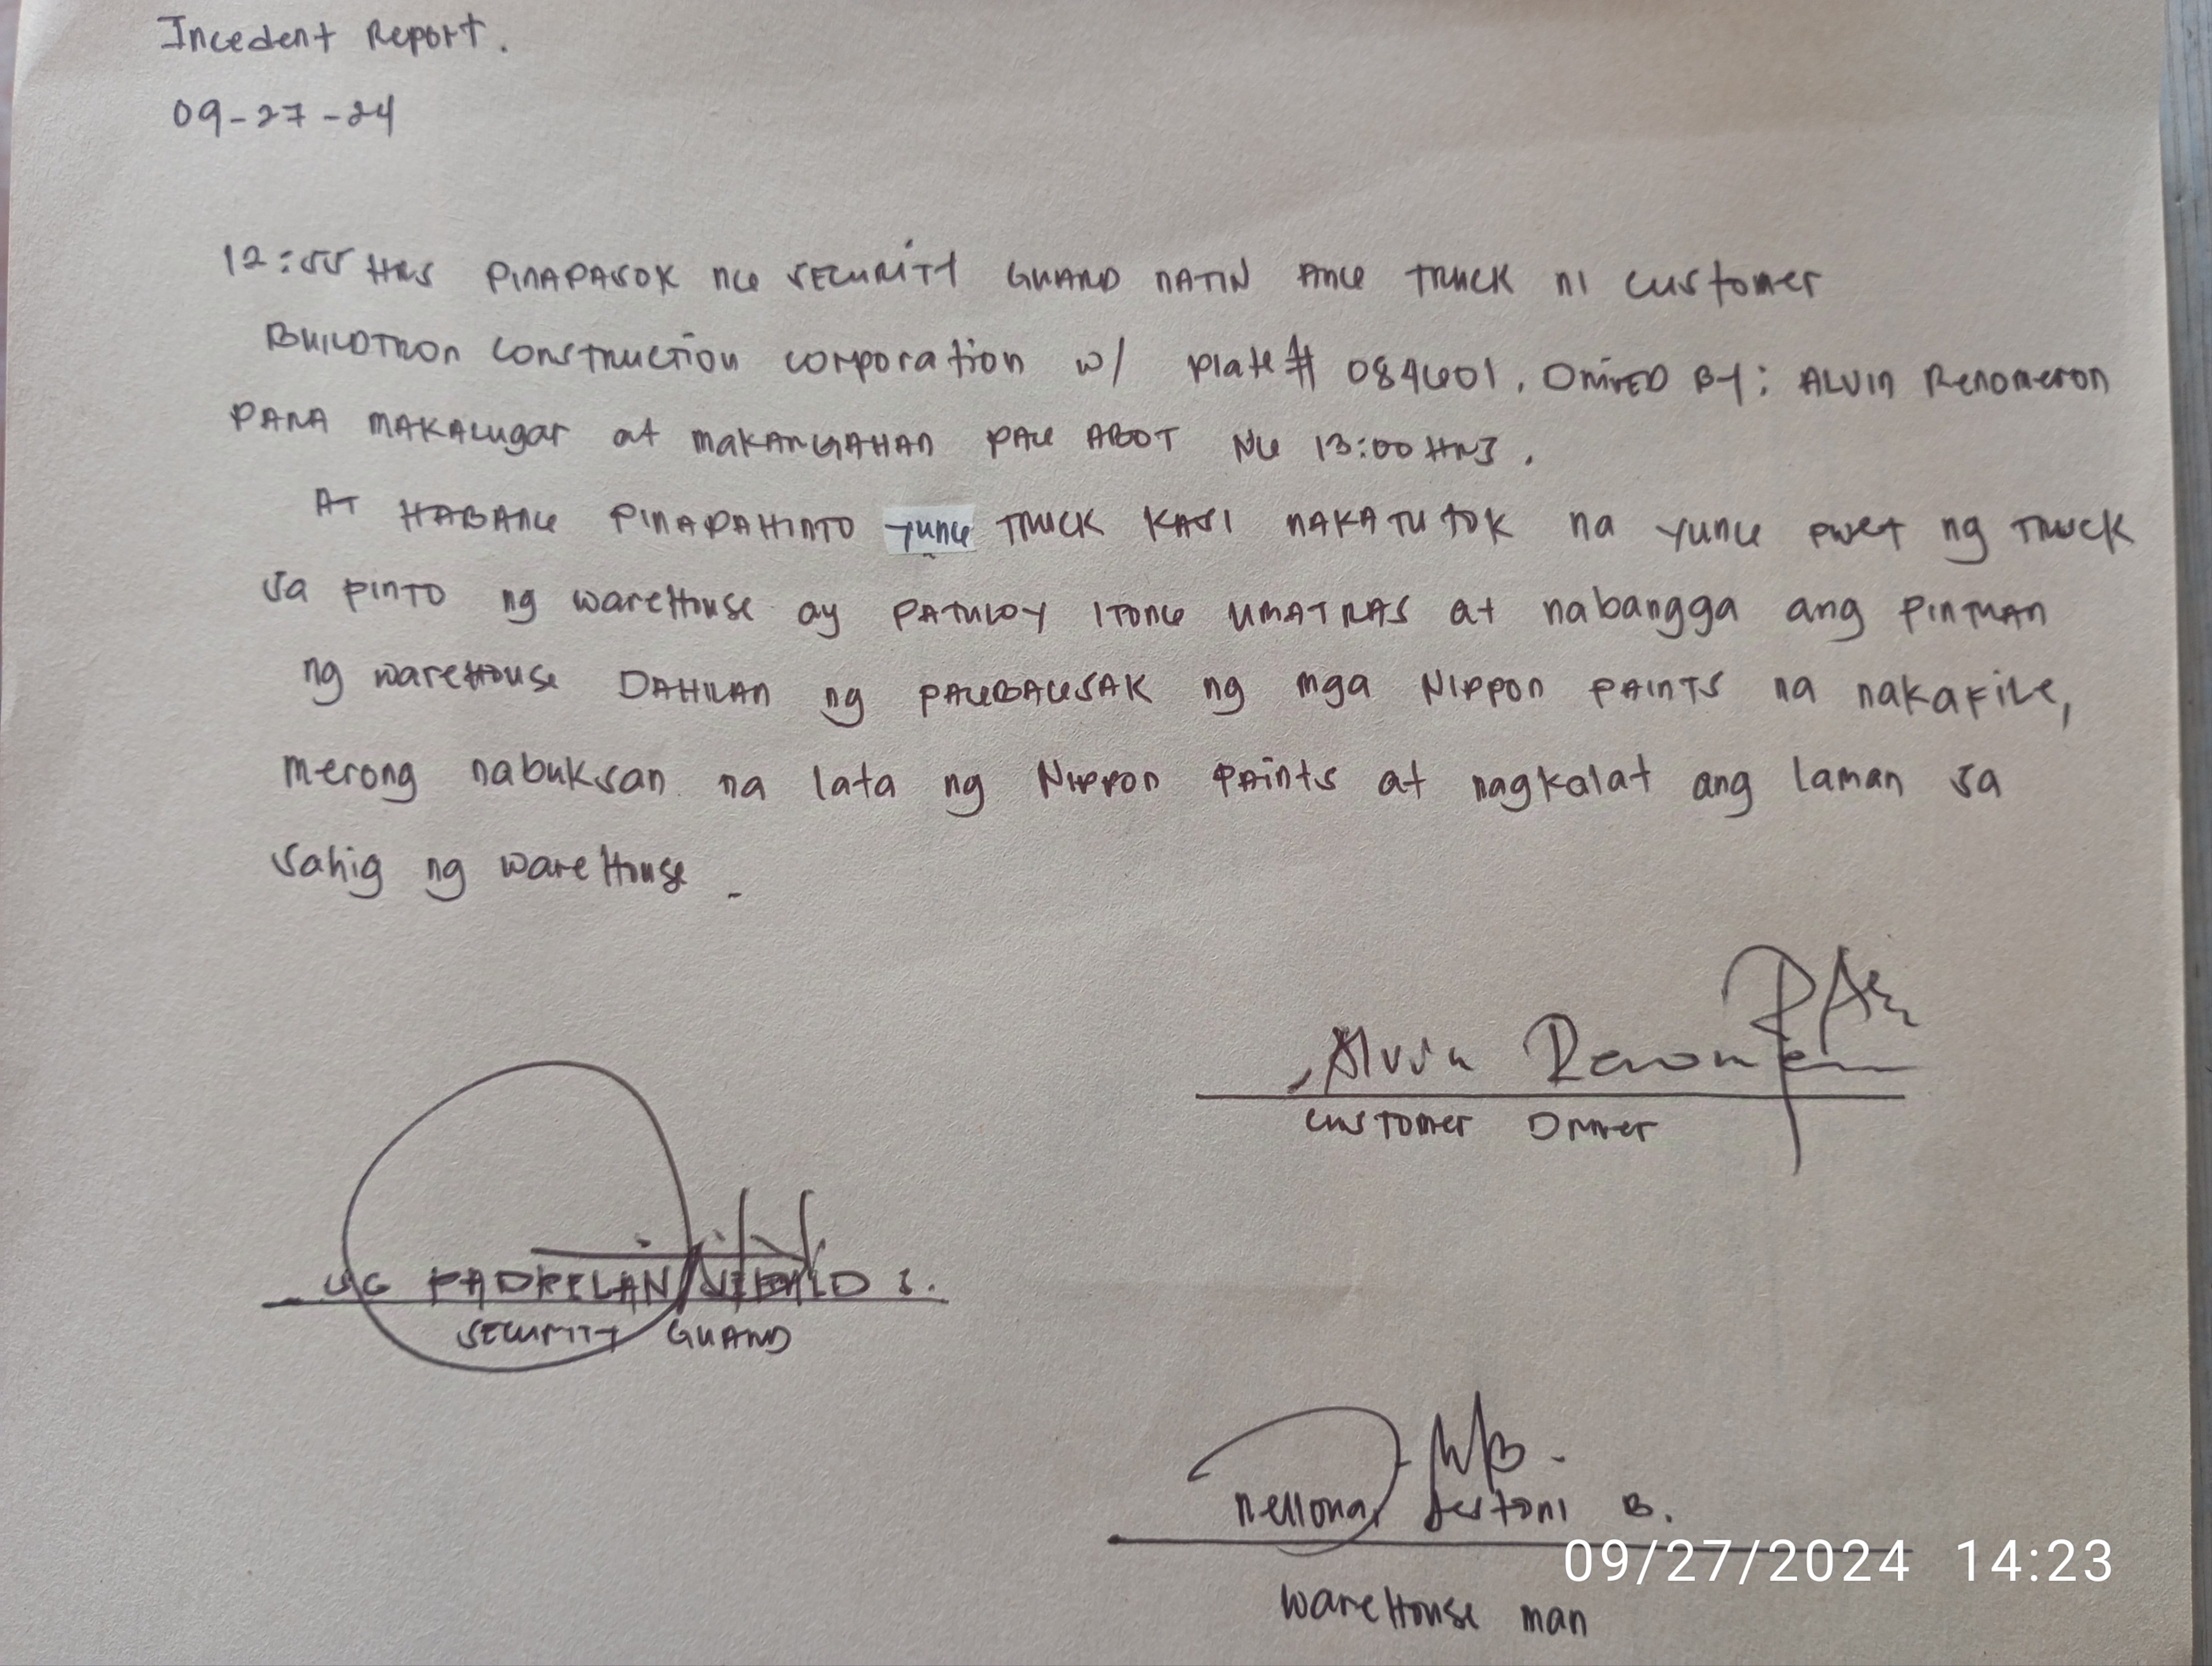 Incedent Report.
09-27-24
12:55 HRS PINAPASOK NG SECURITY GUARD NATIN ANG TRUCK NI customer
BUILDTRON CONSTRUCTION corporation w/ plate# 084601. DRIVED BY: ALVIN Renomeron
PARA MAKALUgar at makARGAHAN PAG ABOT NG 13:00 HRS.
AT HABANG PINAPAHINTO YUNG TRUCK KASI NAKATUTOK na YUNG pwet ng TRUCK
sa PINTO ng wareHouse ay PATULOY ITONG UMATRAS at nabangga ang PINTUAN
ng wareHouse DAHILAN ng PAGBAGSAK ng mga NIppon PAINTS na nakaFILE,
merong nabuksan na lata ng NIPPON PAints at nagkalat ang laman sa
sahig ng wareHouse.
Alvin Renomeron
customer Driver
SG PADRELAN S.
SECURITY GUARD
B.
wareHouse man
09/27/2024 14:23